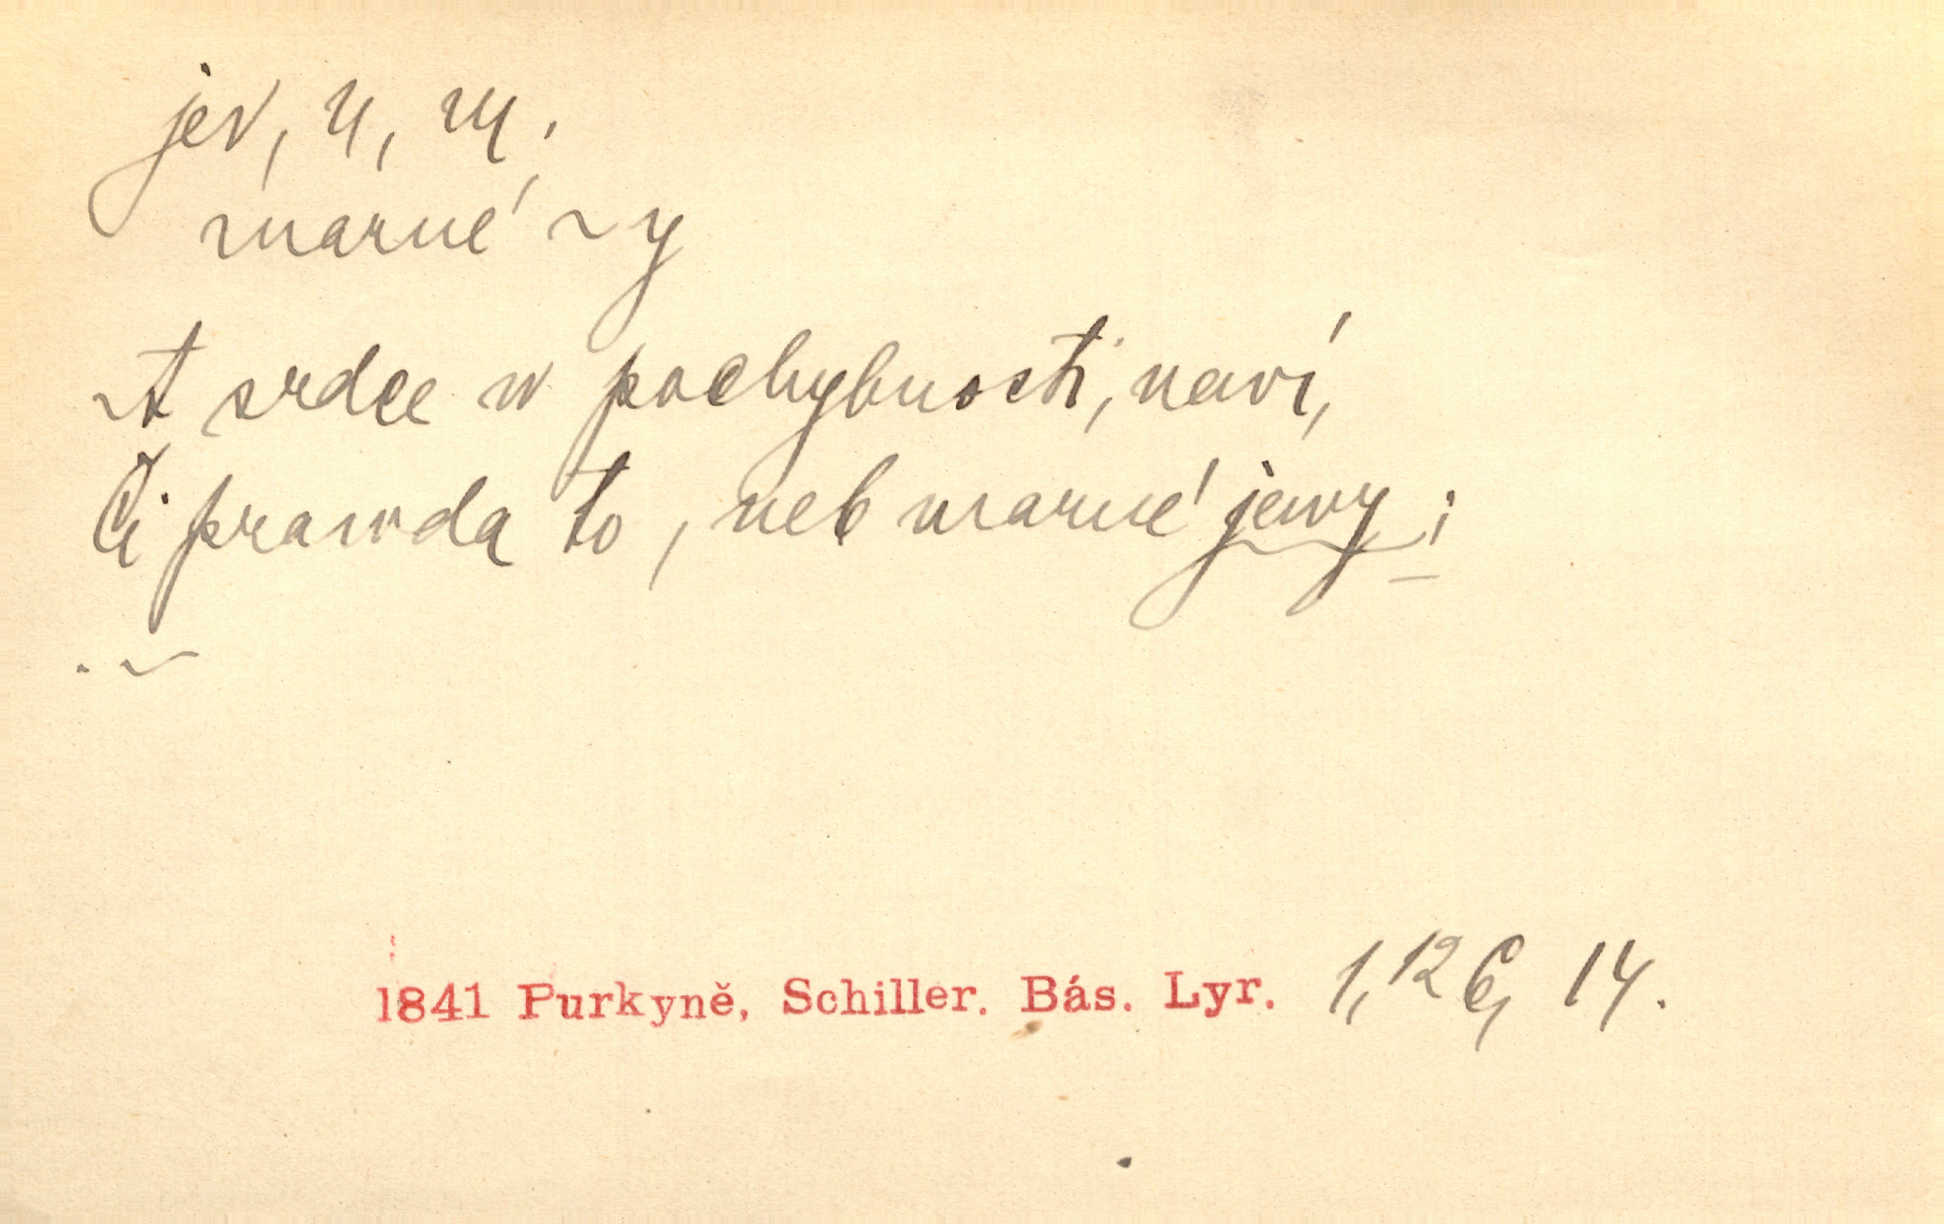 jev, u, m,
marné ~y
A srdce w pochybnosti, neví,
Či prawda to, neb marné jewy;
1841 Purkyně, Schiller. Bás. Lyr. 1, 126, 14.